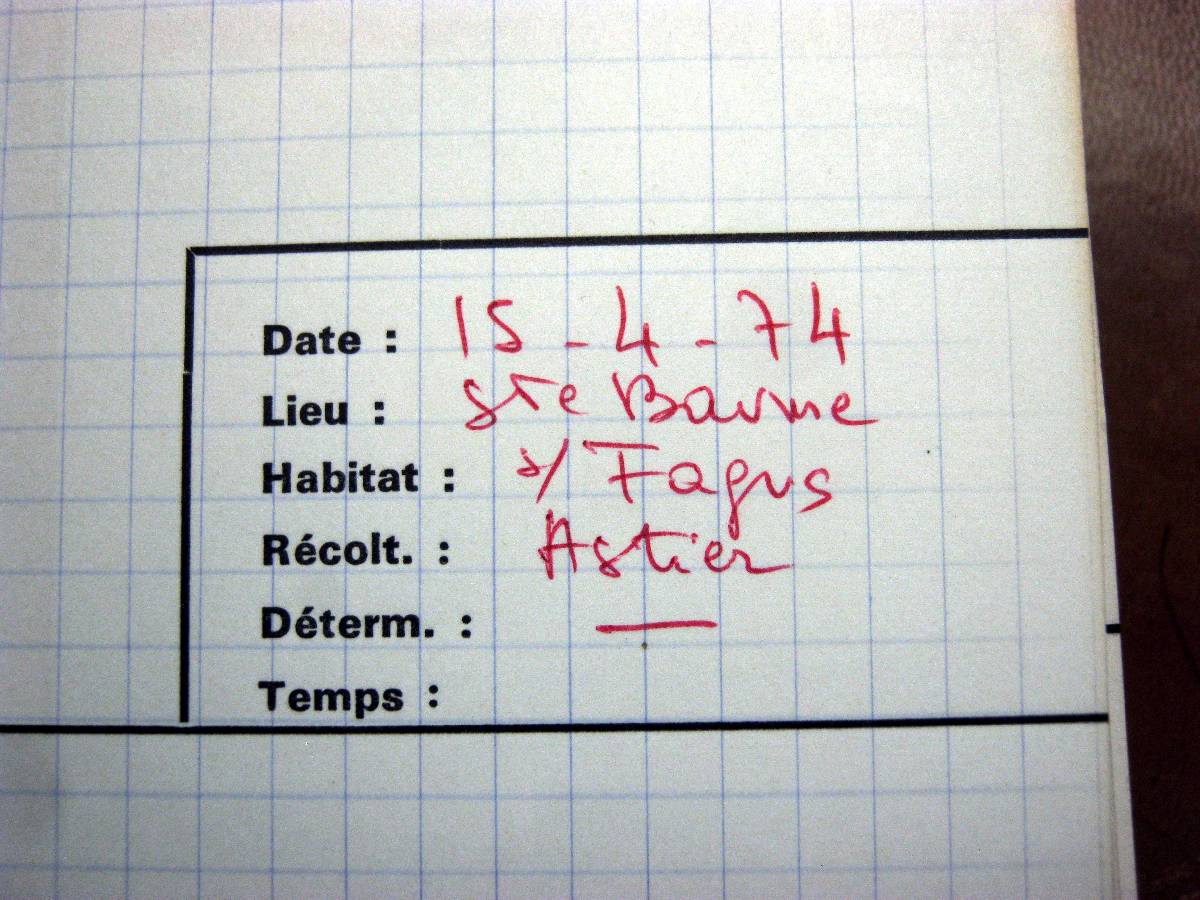 Date : 15 - 4 - 74
Lieu : Ste Baume
Habitat : s/ Fagus
Récolt. : Astier
Déterm. : —
Temps :